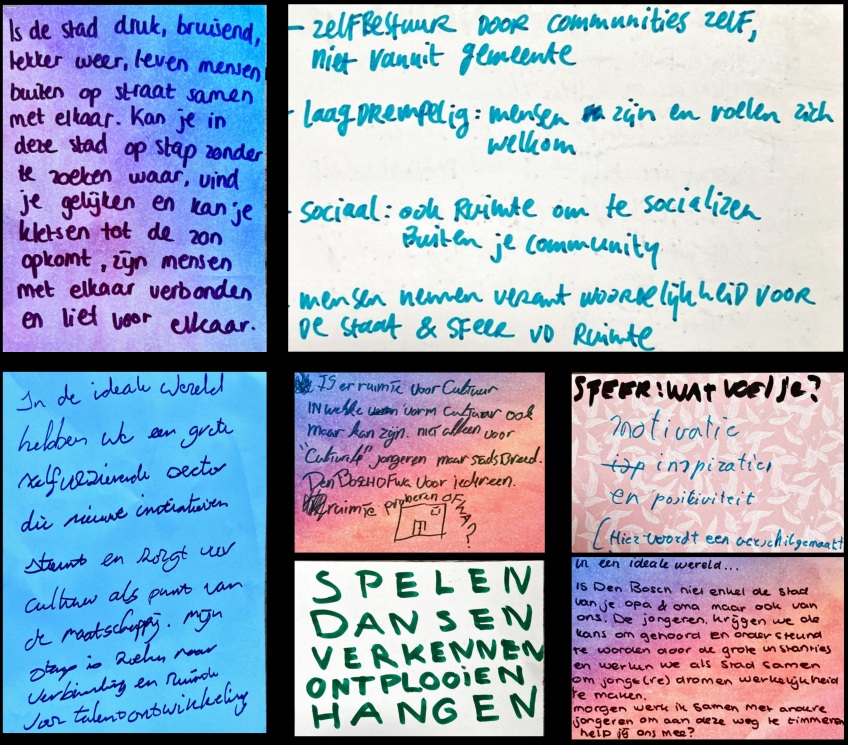 Is de stad druk, bruisend,
lekker weer, leven mensen
buiten op straat samen
met elkaar. Kan je in
deze stad op stap zonder
te zoeken waar, vind
je gelijken en kan je
kletsen tot de zon
opkomt, zijn mensen
met elkaar verbonden
en lief voor elkaar.
- zelfBestuur DOOR communities zelf,
niet vanuit gemeente
- laagDRempelig: mensen zijn en voelen zich
welkom
- sociaal: ook Ruimte om te socializen
Buiten je community
- mensen nemen verantwoordelijkheid voor
De staat & sfeer vd Ruimte
In de ideale wereld
hebben we een grote
zelfvoorzienende sector
die nieuwe initiatieven
steunt en zorgt voor
cultuur als punt van
de maatschappij. mijn
stap is zoeken naar
verbinding en ruimte
voor talentontwikkeling
IS er ruimte voor Cultuur
IN welke vorm cultuur ook
maar kan zijn. niet alleen voor
"Culturele" jongeren maar stadsBreed.
Den Bosch OFwa voor iedereen.
ruimte proberen OF
WA?
SFEER: WAT VOEL JE?
motivatie
inspiratie
en positiviteit
(Hier wordt een verschil gemaakt
SPELEN
DANSEN
VERKENNEN
ONTPLOOIEN
HANGEN
in een ideale wereld...
IS Den Bosch niet enkel de stad
van je opa & oma maar ook van
ons. De jongeren. krijgen we de
kans om gehoord en ondersteund
te worden door de grote instanties
en werken we als stad samen
om jonge(re) dromen werkelijkheid
te maken.
morgen werk ik samen met andere
jongeren om aan deze weg te timmeren
help jij ons mee?